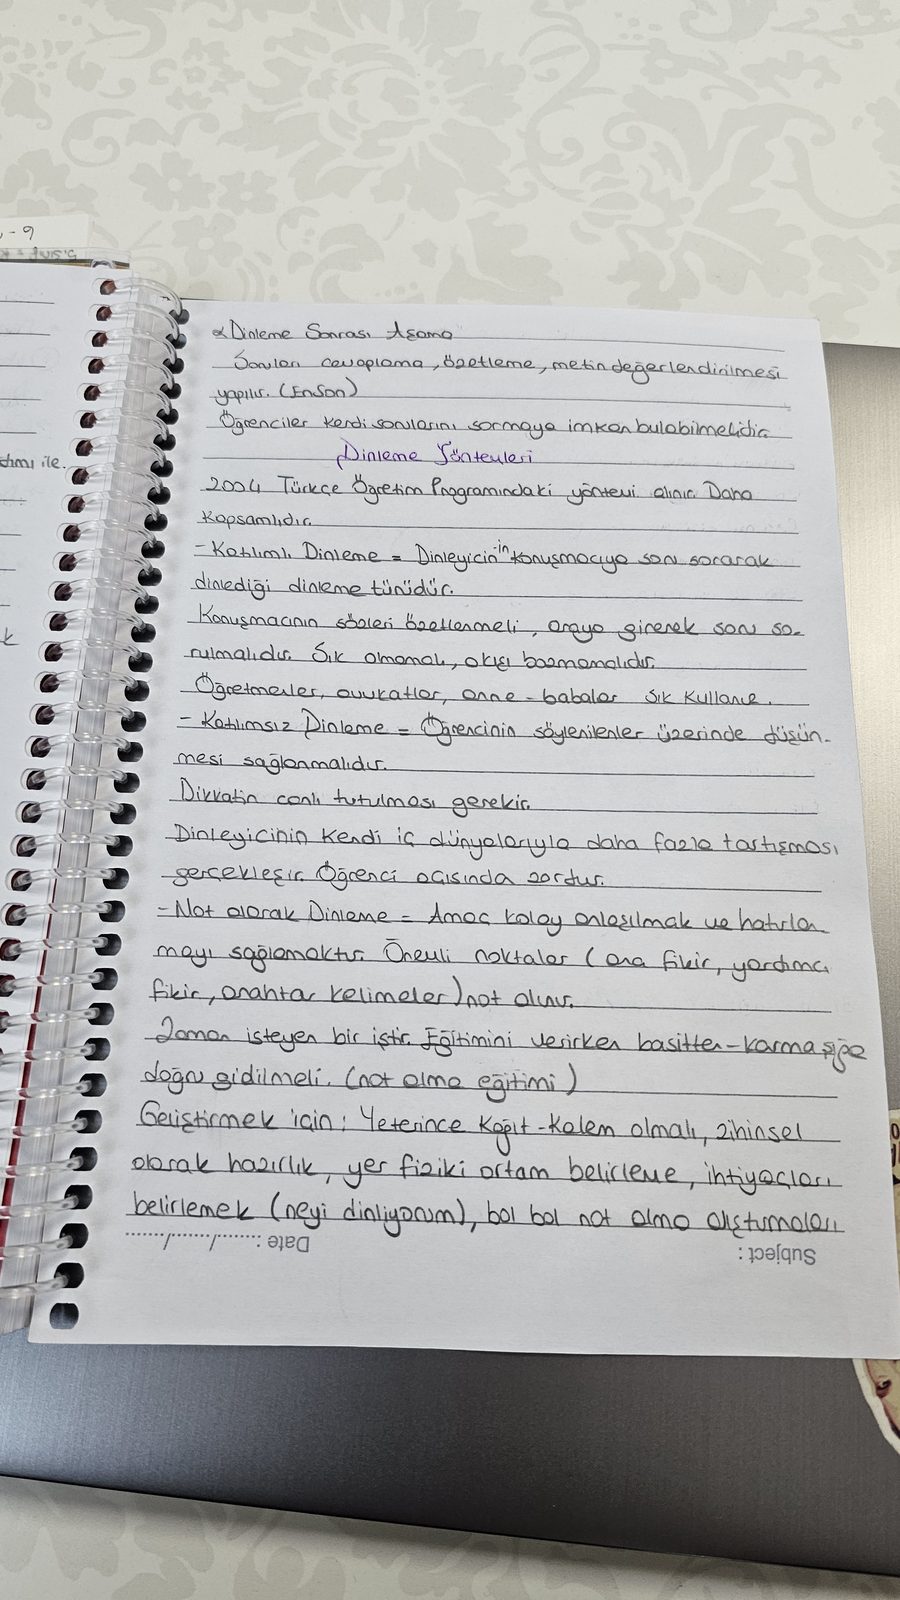 Dinleme Sonrası Aşama
Soruları cevaplama, özetleme, metin değerlendirilmesi
yapılır. (EnSon)
Öğrenciler kendi sorularını sormaya imkan bulabilmelidir.
Dinleme Yöntemleri
2004 Türkçe Öğretim Programındaki yöntemi alınır. Daha
kapsamlıdır.
- Katılımlı Dinleme = Dinleyicinin konuşmacıya soru sorarak
dinlediği dinleme türüdür.
Konuşmacının sözleri özetlenmeli, araya girerek soru so-
rulmalıdır. Sık olmamalı, akışı bozmamalıdır.
Öğretmenler, avukatlar, anne-babalar sık kullanır.
- Katılımsız Dinleme = Öğrencinin söylenilenler üzerinde düşün-
mesi sağlanmalıdır.
Dikkatin canlı tutulması gerekir.
Dinleyicinin kendi iç dünyalarıyla daha fazla tartışması
gerçekleşir. Öğrenci açısında zordur.
- Not alarak Dinleme = Amaç kolay anlaşılmak ve hatırla
mayı sağlamaktır. Önemli noktalar (ana fikir, yardımcı
fikir, anahtar kelimeler) not alınır.
Zaman isteyen bir iştir. Eğitimini verirken basitten-karmaşığa
doğru gidilmeli. (not alma eğitimi)
Geliştirmek için: Yeterince Kağıt-Kalem olmalı, zihinsel
olarak hazırlık, yer fiziki ortam belirleme, ihtiyaçları
belirlemek (neyi dinliyorum), bol bol not alma alıştırmaları
Subject:
Date: ......./......./.......
dımı ile.
k